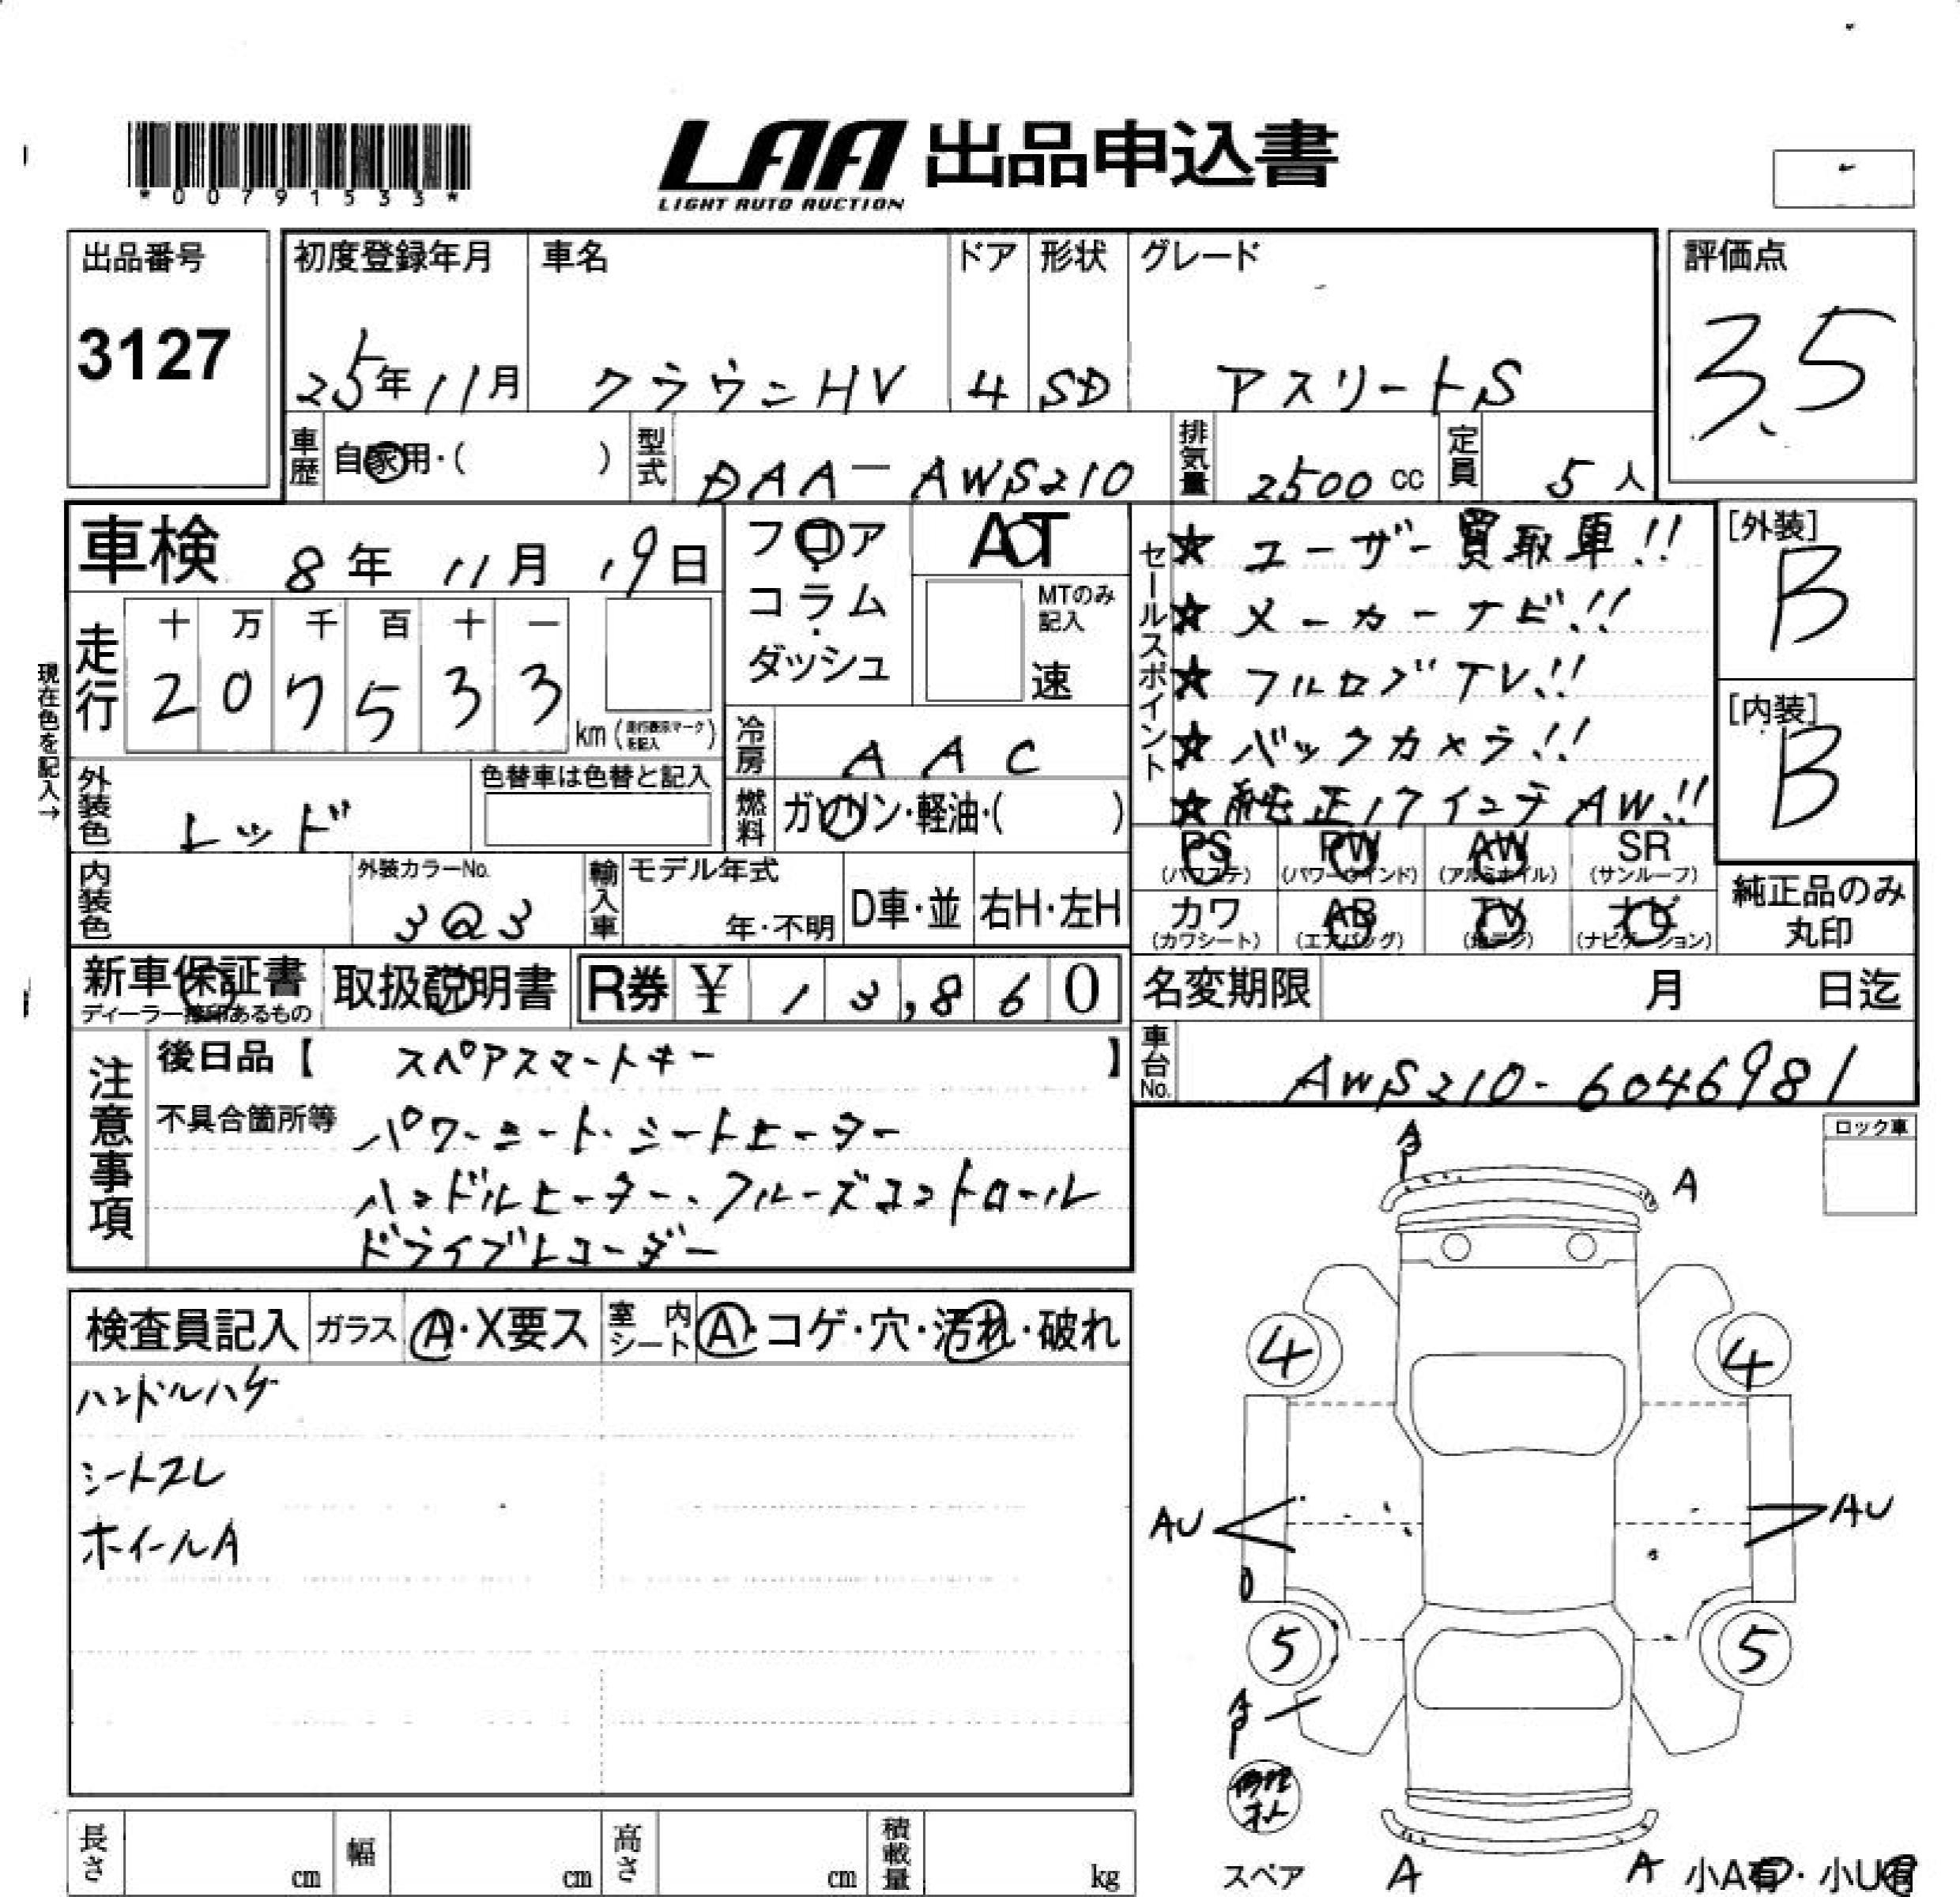 *00791533*
LAA 出品申込書
LIGHT AUTO AUCTION
出品番号
3127
初度登録年月
25年11月
車名
クラウンHV
ドア
4
形状
SD
グレード
アスリートS
評価点
3.5
車歴
自家用・( )
型式
DAA-AWS210
排気量
2500 cc
定員
5人
車検 8年 11月 19日
走行
十 万 千 百 十 一
2 0 7 5 3 3
km (走行表示マークを記入)
現在色を記入→
外装色
レッド
色替車は色替と記入
内装色
外装カラーNo.
3Q3
フロア
コラム
ダッシュ
AT
MTのみ記入
速
冷房
AAC
燃料
ガソリン・軽油・( )
輸入車
モデル年式
年・不明
D車・並
右H・左H
セールスポイント
★ユーザー買取車!!
★メーカーナビ!!
★フルセグTV!!
★バックカメラ!!
★純正17インチAW!!
[外装]
B
[内装]
B
PS (パワステ)
PW (パワーウインド)
AW (アルミホイル)
SR (サンルーフ)
カワ (カワシート)
AB (エアバッグ)
TV (地デジ)
ナビ (ナビゲーション)
純正品のみ丸印
新車保証書
ディーラー捺印あるもの
取扱説明書
R券 ¥ 13,860
名変期限 月 日迄
車台No.
AWS210-6046981
注意事項
後日品【 スペアスマートキー 】
不具合箇所等
パワーシート・シートヒーター
ハンドルヒーター、クルーズコントロール
ドライブレコーダー
ロック車
検査員記入
ガラス
A・X要ス
室内シート
A・コゲ・穴・汚れ・破れ
ハンドルハゲ
シートスレ
ホイールA
A
P
A
4
4
AU
AU
5
5
A
P
修理キット
スペア
A
A
小A有・小U有
長さ cm
幅 cm
高さ cm
積載量 kg